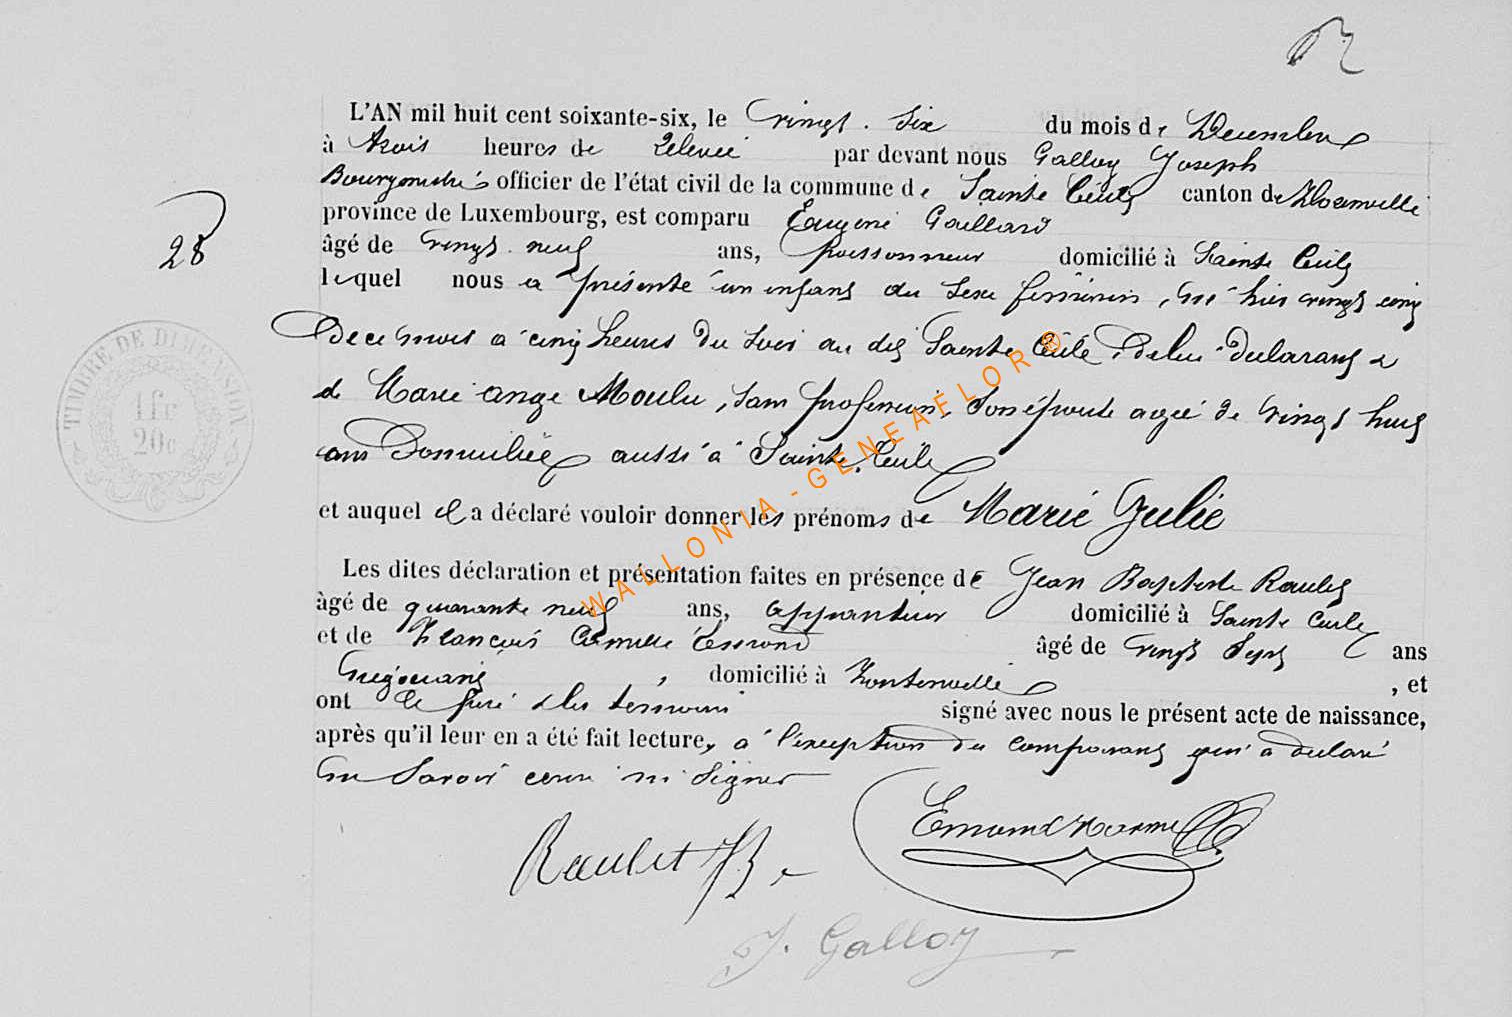 L'AN mil huit cent soixante-six, le vingt six du mois de Décembre
à trois heures de relevée par devant nous Galloy Joseph
Bourgmestre officier de l'état civil de la commune de Sainte Cécile canton de Florenville
province de Luxembourg, est comparu Eugène Gaillard
âgé de vingt neuf ans, domicilié à Sainte Cécile
lequel nous a présenté un enfant du sexe féminin, né hier vingt cinq
de ce mois à cinq heures du soir au dit Sainte Cécile, de lui déclarant &
de Marie Ange Moulu, sans profession, son épouse agée de vingt huit
ans domiciliée aussi à Sainte Cécile
et auquel il a déclaré vouloir donner les prénoms de Marie Julie
Les dites déclaration et présentation faites en présence de Jean Baptiste Raulet
âgé de quarante neuf ans, domicilié à Sainte Cécile
et de François Camille Esmond âgé de vingt sept ans
domicilié à Fontenoille, et
ont le père & les témoins signé avec nous le présent acte de naissance,
après qu'il leur en a été fait lecture, à l'exception du comparant qui a déclaré
ne savoir écrire ni signer
Raulet JB
J. Galloy
28
TIMBRE DE DIMENSION
1 fr
20c
WALLONIA - GENEAFLOR ®